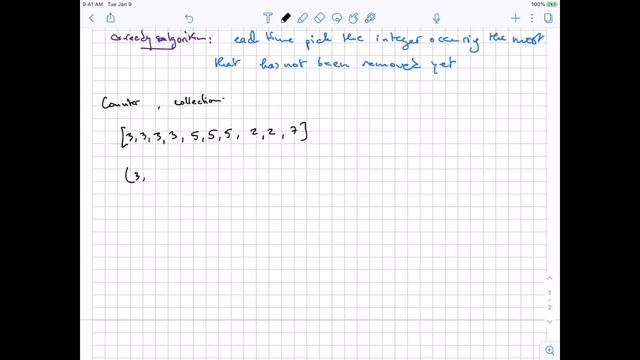 9:41 AM Tue Jan 9
100%
Greedy algorithm: each time pick the integer occuring the most
that has not been removed yet
Counter, collection
[3,3,3,3,5,5,5,2,2,7]
(3,
1
2